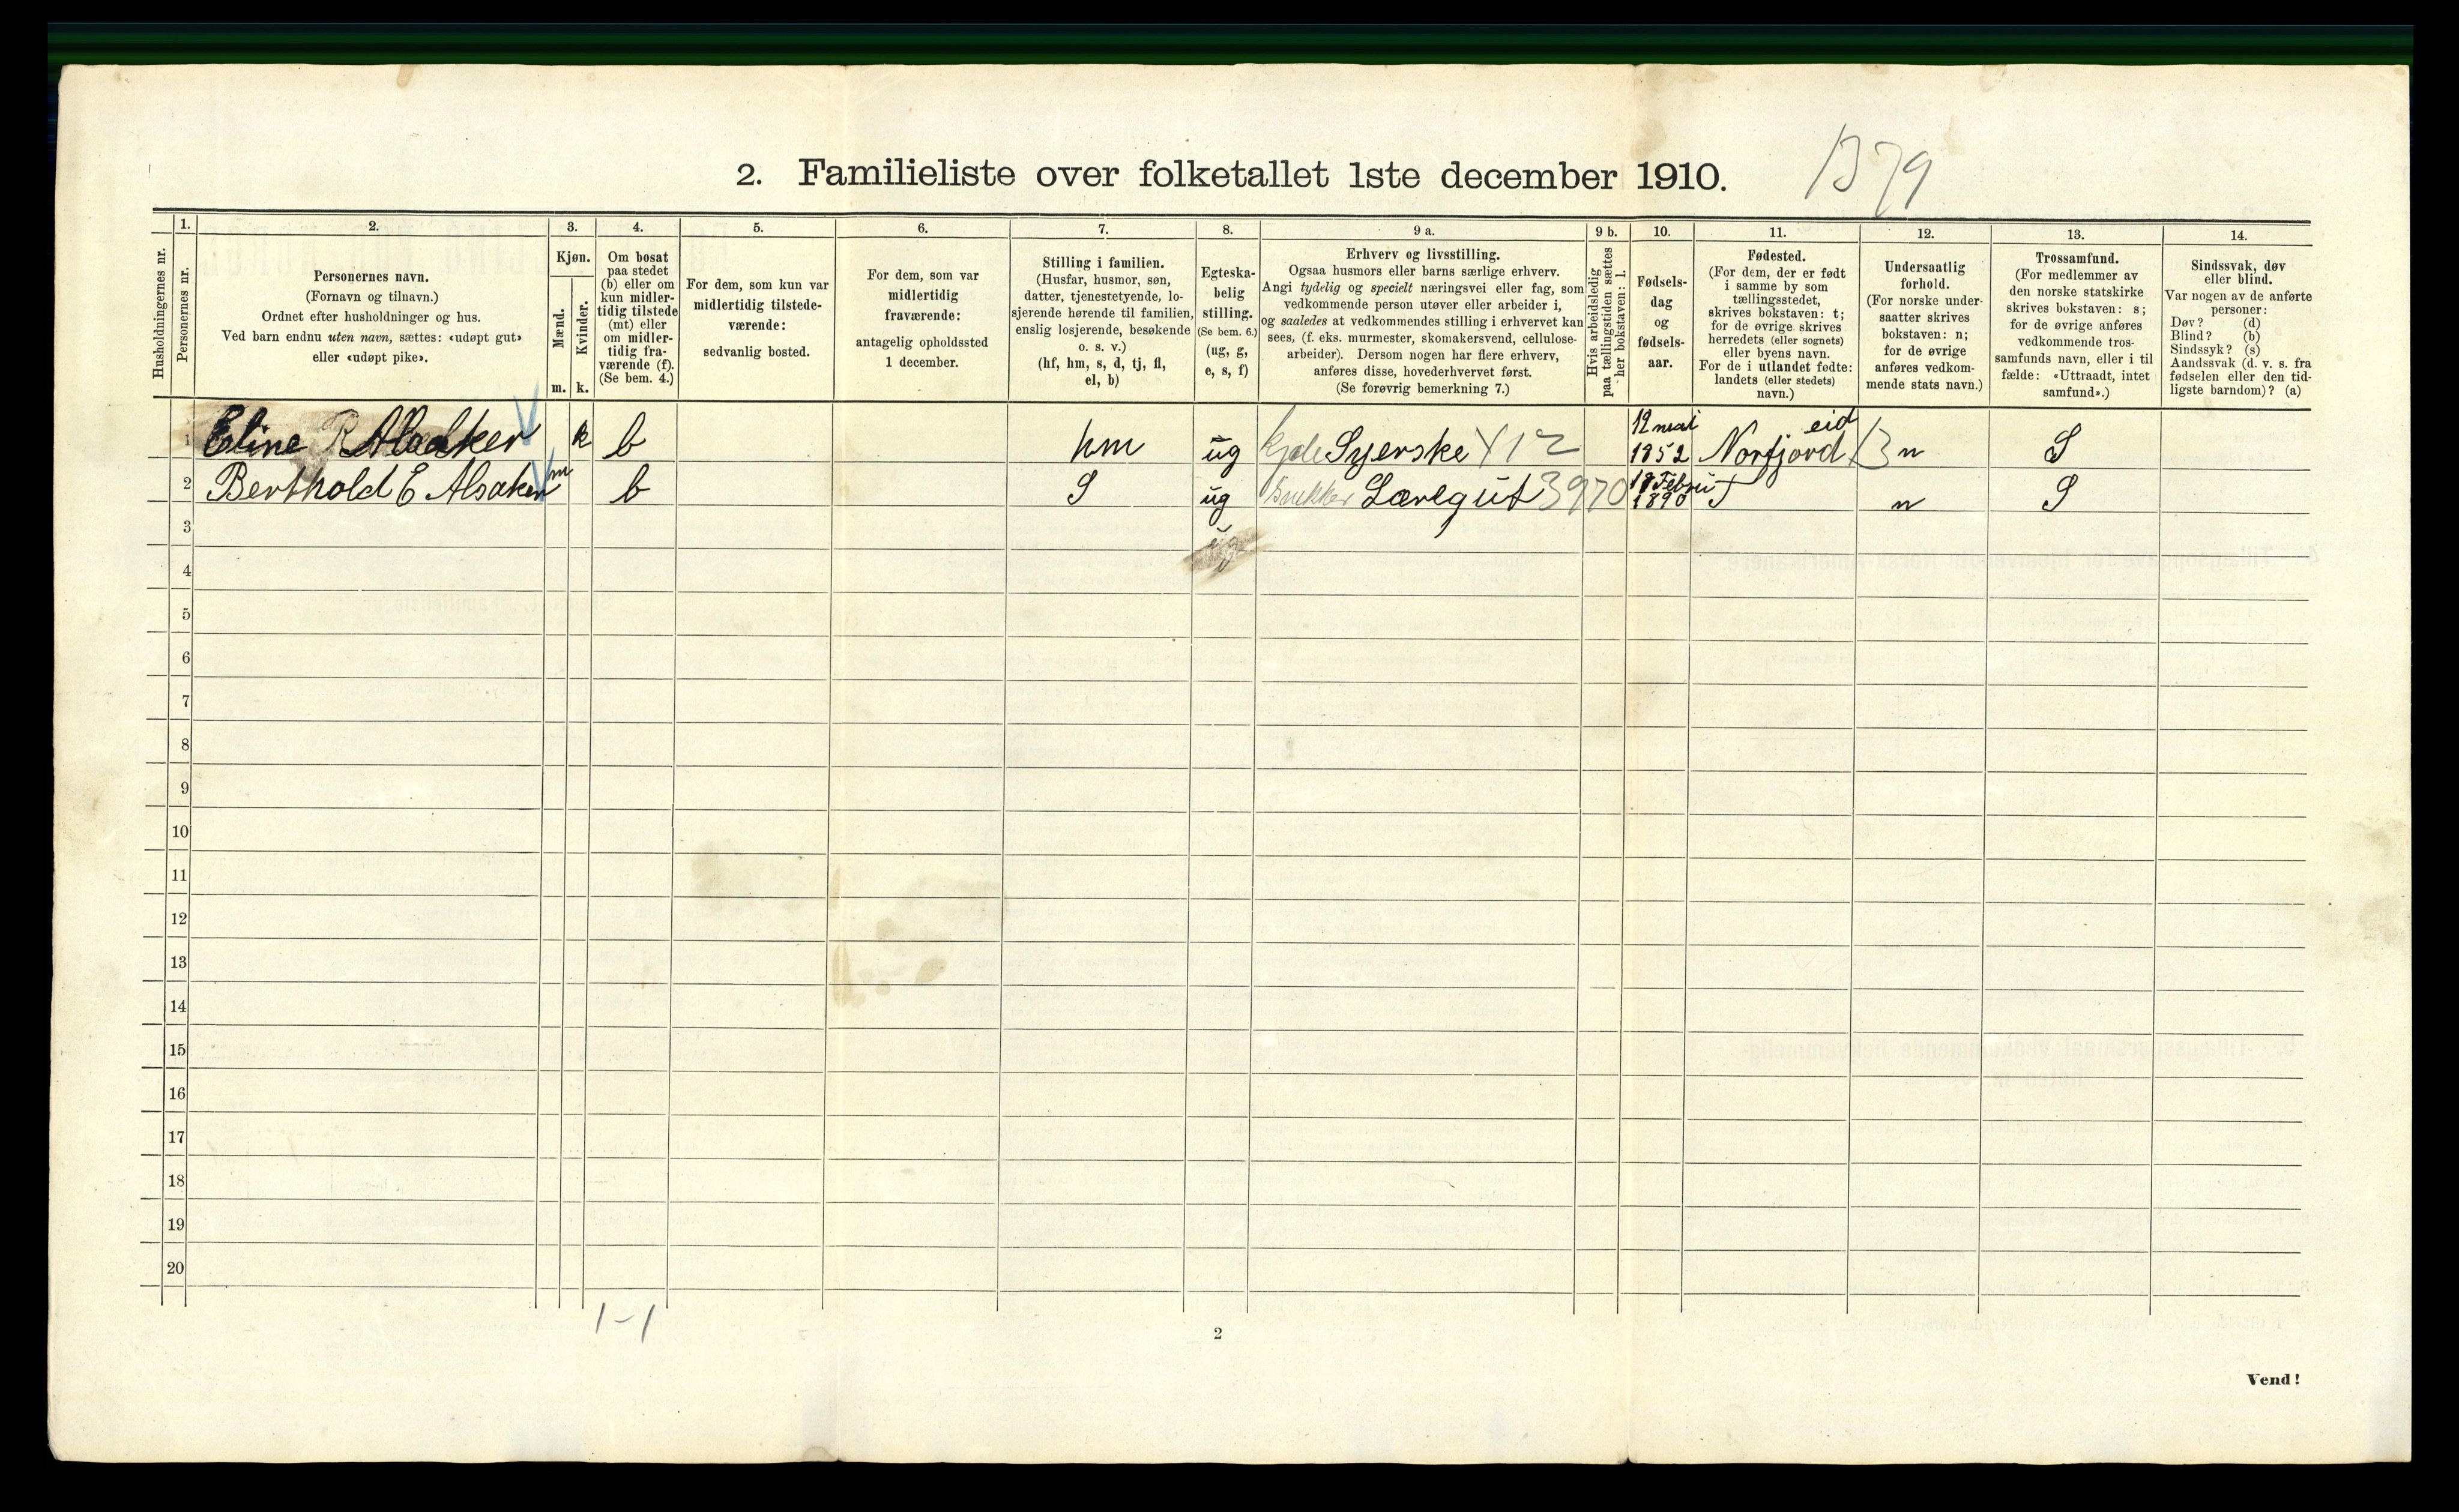 2. Familieliste over folketallet 1ste december 1910.
1379
Husholdningernes nr.
1.
Personernes nr.
2.
Personernes navn.
(Fornavn og tilnavn.)
Ordnet efter husholdninger og hus.
Ved barn endnu uten navn, sættes: «udøpt gut»
eller «udøpt pike».
3.
Kjøn.
Mænd.
m.
Kvinder.
k.
4.
Om bosat
paa stedet
(b) eller om
kun midler-
tidig tilstede
(mt) eller
om midler-
tidig fra-
værende (f).
(Se bem. 4.)
5.
For dem, som kun var
midlertidig tilstede-
værende:
sedvanlig bosted.
6.
For dem, som var
midlertidig
fraværende:
antagelig opholdssted
1 december.
7.
Stilling i familien.
(Husfar, husmor, søn,
datter, tjenestetyende, lo-
sjerende hørende til familien,
enslig losjerende, besøkende
o. s. v.)
(hf, hm, s, d, tj, fl,
el, b)
8.
Egteska-
belig
stilling.
(Se bem. 6.)
(ug, g,
e, s, f)
9 a.
Erhverv og livsstilling.
Ogsaa husmors eller barns særlige erhverv.
Angi tydelig og specielt næringsvei eller fag, som
vedkommende person utøver eller arbeider i,
og saaledes at vedkommendes stilling i erhvervet kan
sees, (f. eks. murmester, skomakersvend, cellulose-
arbeider). Dersom nogen har flere erhverv,
anføres disse, hovederhvervet først.
(Se forøvrig bemerkning 7.)
9 b.
Hvis arbeidsledig
paa tællingstiden sættes
her bokstaven: l.
10.
Fødsels-
dag
og
fødsels-
aar.
11.
Fødested.
(For dem, der er født
i samme by som
tællingsstedet,
skrives bokstaven: t;
for de øvrige skrives
herredets (eller sognets)
eller byens navn.
For de i utlandet fødte:
landets (eller stedets)
navn.)
12.
Undersaatlig
forhold.
(For norske under-
saatter skrives
bokstaven: n;
for de øvrige
anføres vedkom-
mende stats navn.)
13.
Trossamfund.
(For medlemmer av
den norske statskirke
skrives bokstaven: s;
for de øvrige anføres
vedkommende tros-
samfunds navn, eller i til-
fælde: «Uttraadt, intet
samfund».)
14.
Sindssvak, døv
eller blind.
Var nogen av de anførte
personer:
Døv? (d)
Blind? (b)
Sindssyk? (s)
Aandssvak (d. v. s. fra
fødselen eller den tid-
ligste barndom)? (a)
1 Eline R Alsaker k b hm ug kjole Syerske X12 12 mai 1852 Norfjord eid n S
2 Berthold E Alsaker m b S ug Lærlgut 3970 18 Febru 1890 T n S
3 ug
4
5
6
7
8
9
10
11
12
13
14
15
16
17
18
19
20
1-1
2
Vend!